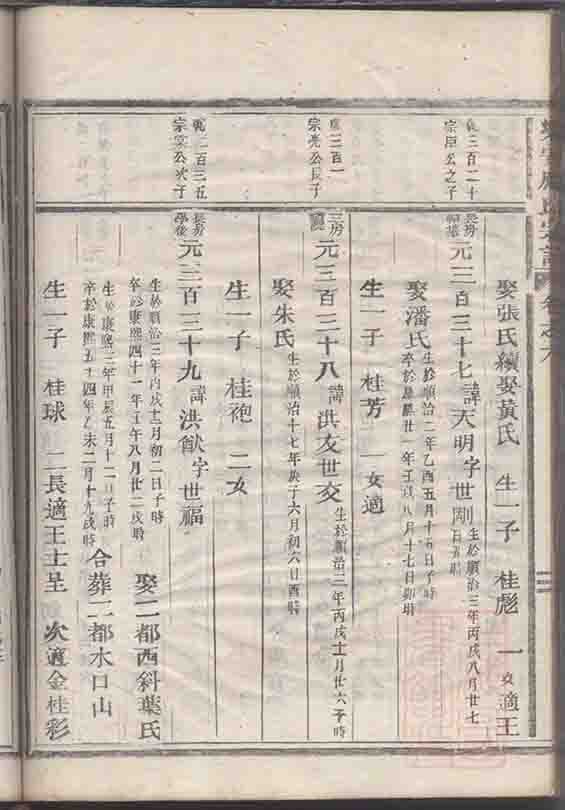 娶張氏續娶黃氏 生一子 桂彪 一女適王
乾三百二十
宗原公之子
長房
元三百三十七諱天明字世剛
生於順治三年丙戌八月廿七
娶潘氏
生於順治二年乙酉五月十五日子時
卒於康熙廿一年壬戌八月十七日卯時
生一子 桂芳 一女適
乾三百一
宗亮公長子
三房
元三百三十八諱洪友世交
生於順治三年丙戌十一月廿六子時
娶朱氏
生於順治十七年庚子六月初六日酉時
生一子 桂袍 二女
乾二百三五
宗棠公次子
長房
學後
元三百三十九諱洪猷字世福
生於順治三年丙戌十二月初二日子時
卒於康熙四十一年壬午八月廿二戌時
娶二都西斜葉氏
生於康熙三年甲辰五月十二日子時
卒於康熙五十四年乙未二月十九戌時
合葬二都水口山
生一子 桂球 二長適王士呈 次適金桂彩